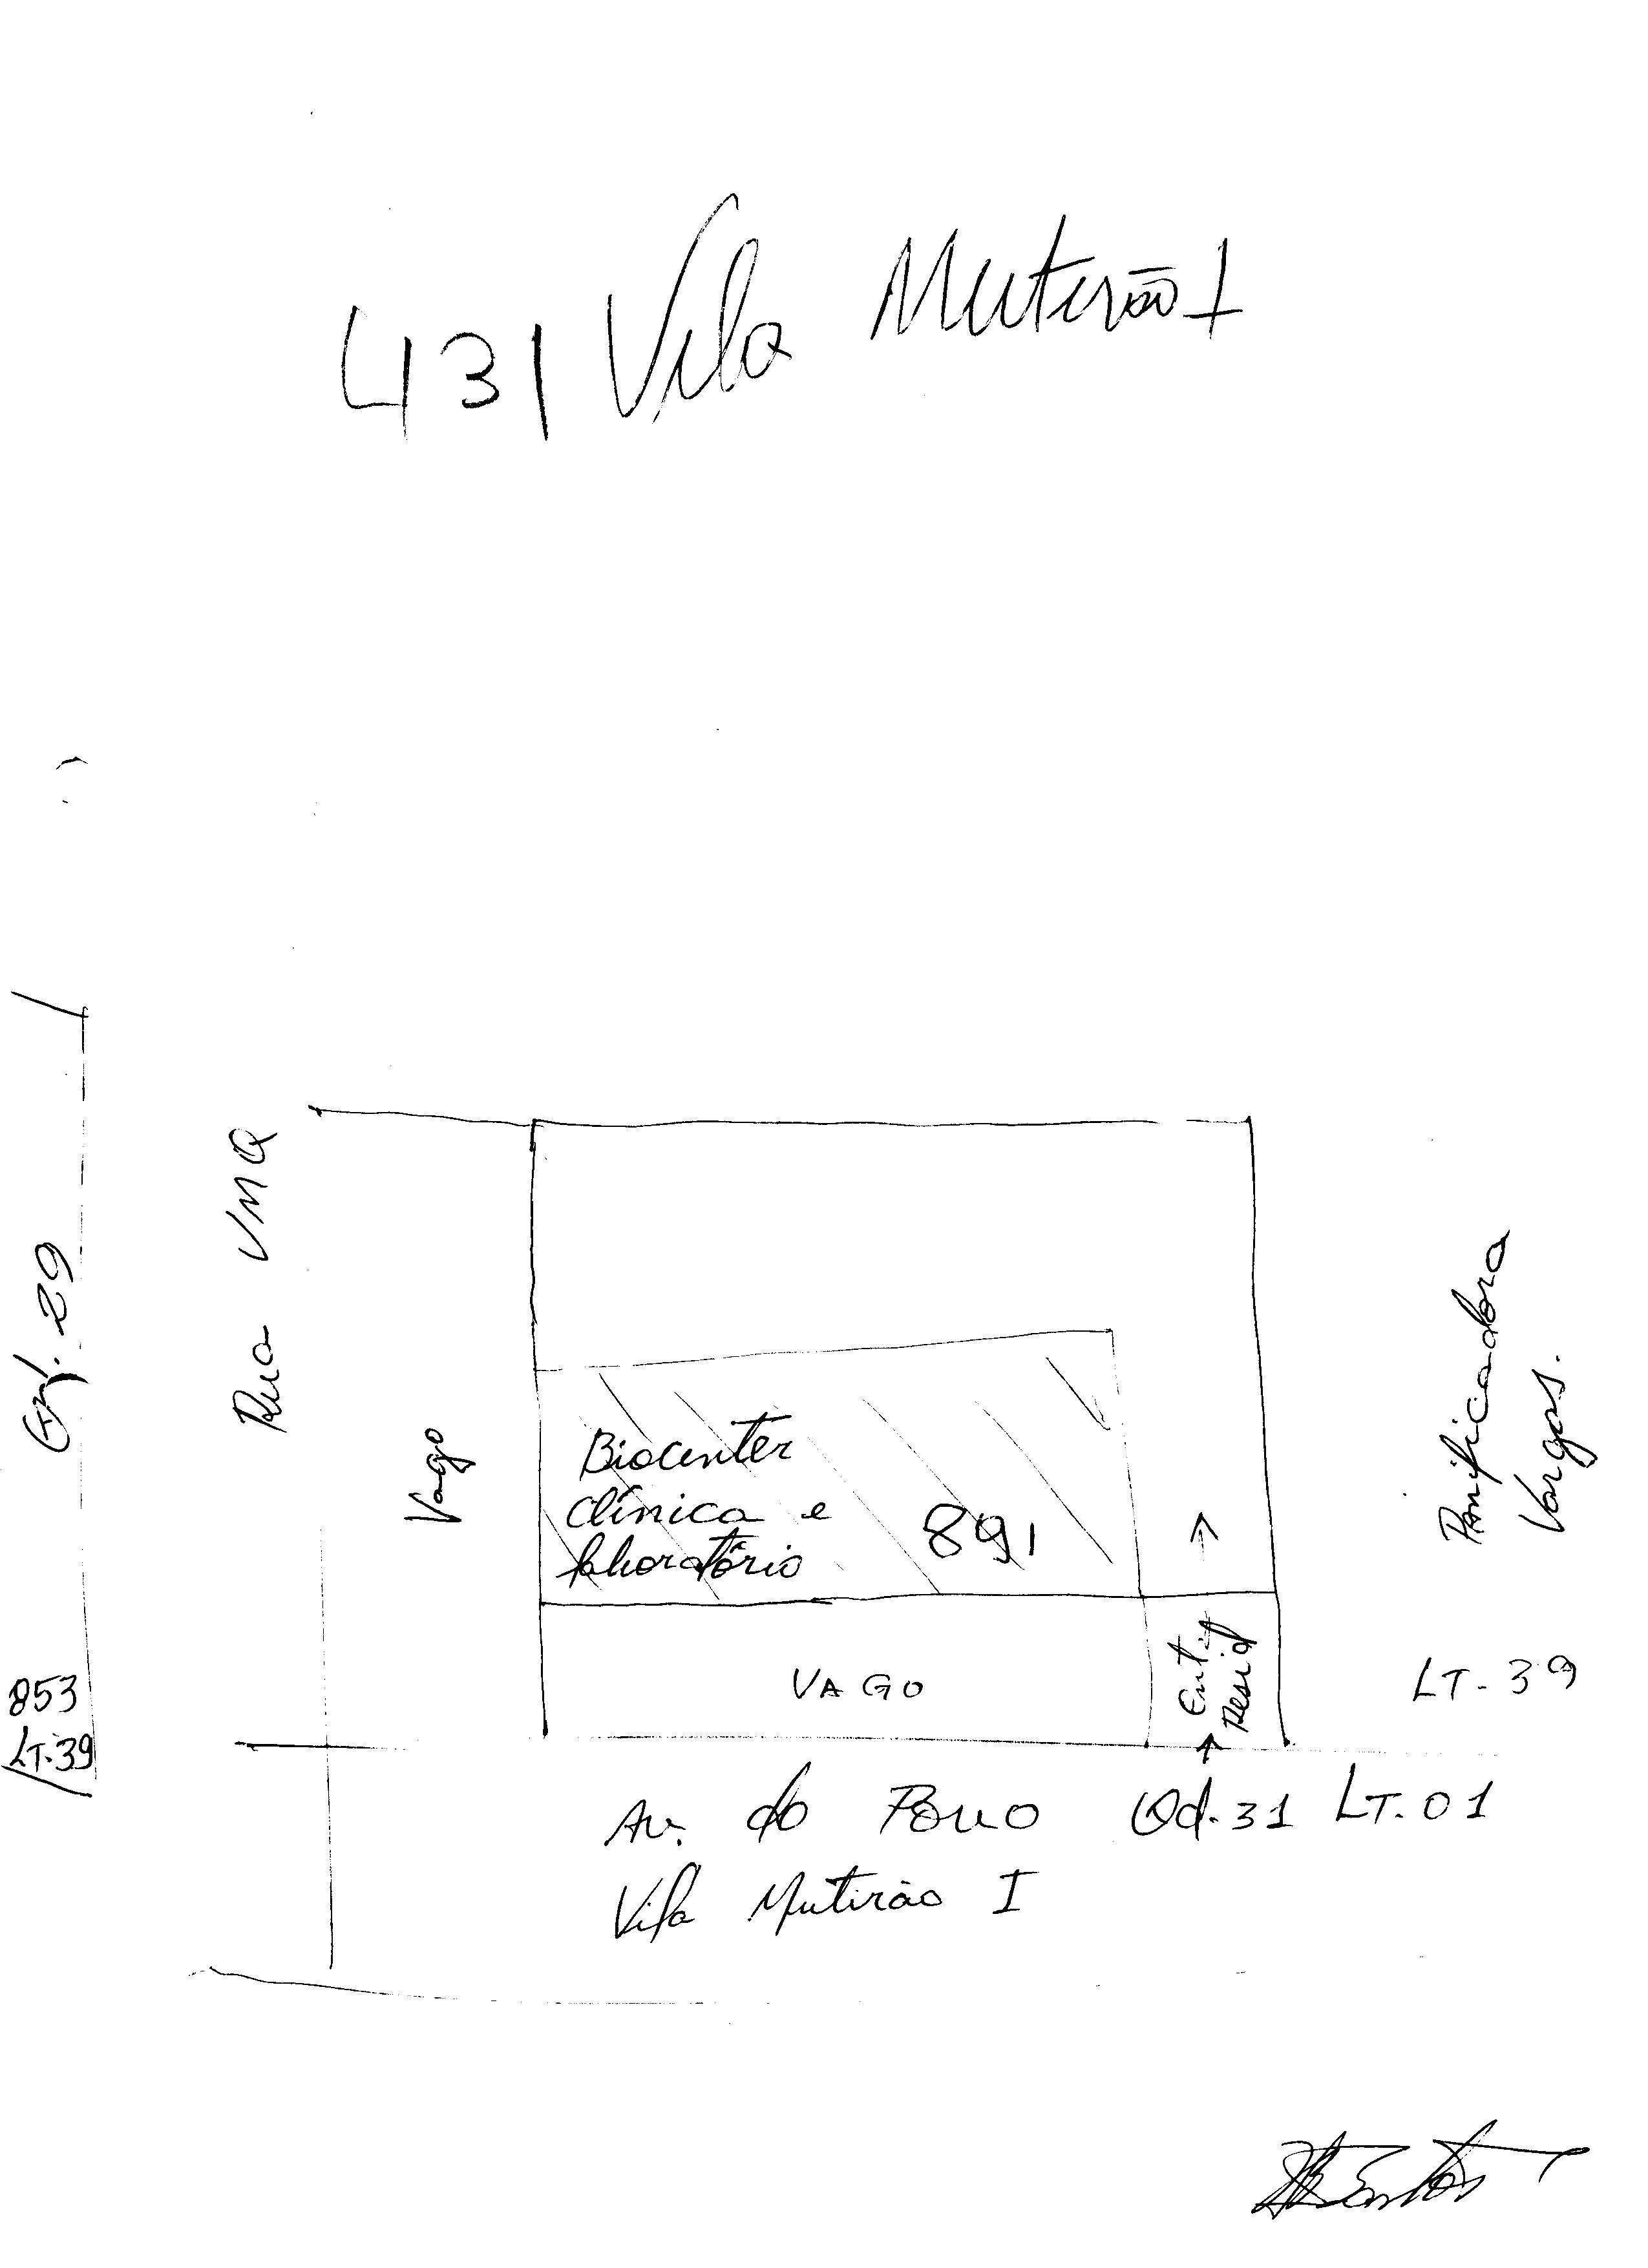 431 Vila Mutirão I
Qd. 29
Rua VMQ
Vago
Biocenter
clínica e
laboratório
891
Panificadora
Vargas.
VAGO
Resid
853
LT.39
LT-39
Av. do Povo Qd.31 LT.01
Vila Mutirão I